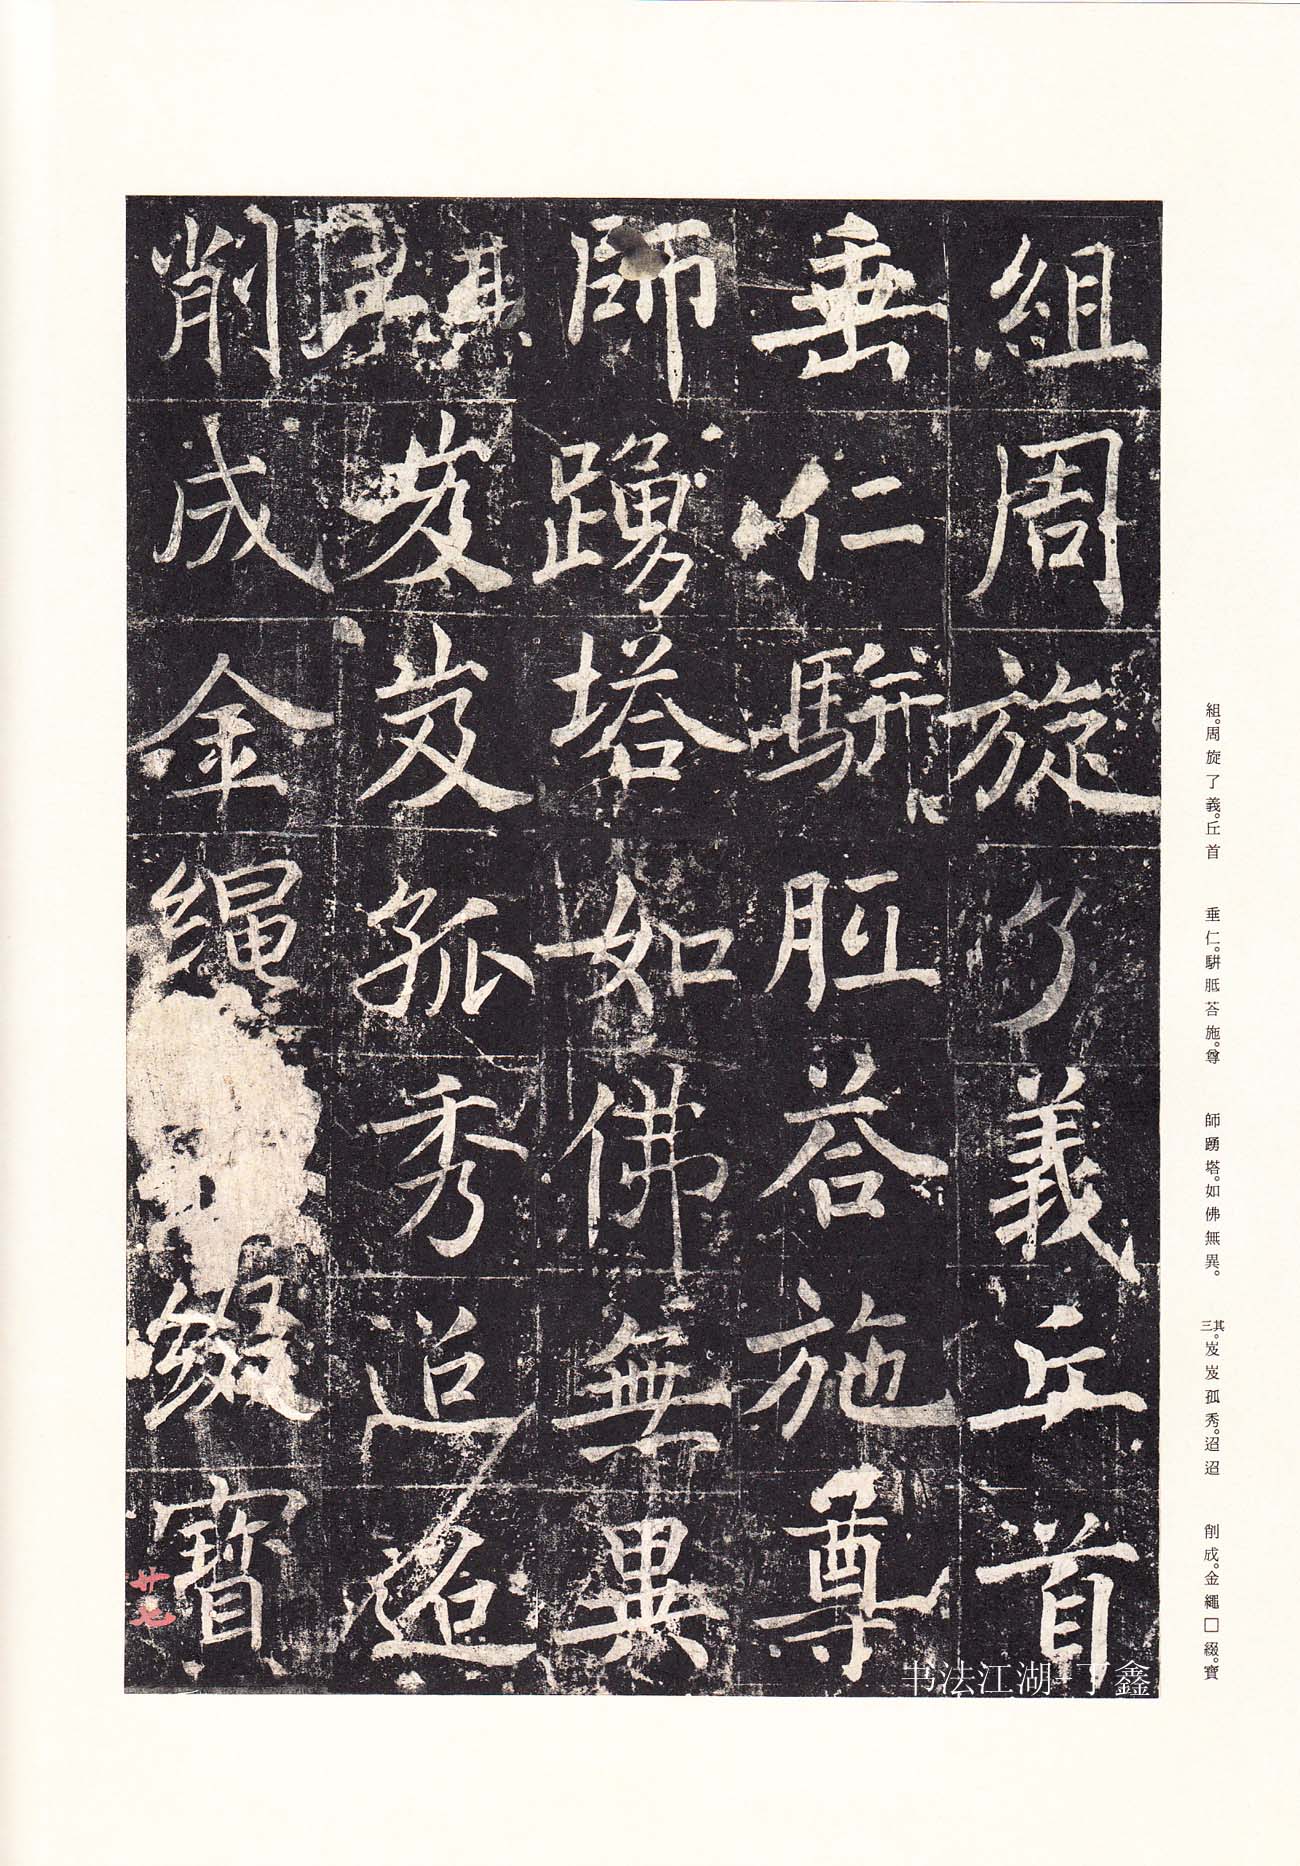 組周旋了義丘首
垂仁駢胝荅施尊
師踴塔如佛無異
其三岌岌孤秀迢迢
削成金繩□綴寶
組。周旋了義。丘首
垂仁。駢胝荅施。尊
師踴塔。如佛無異。
其三。岌岌孤秀。迢迢
削成。金繩□綴。寶
廿七
书法江湖-丁鑫